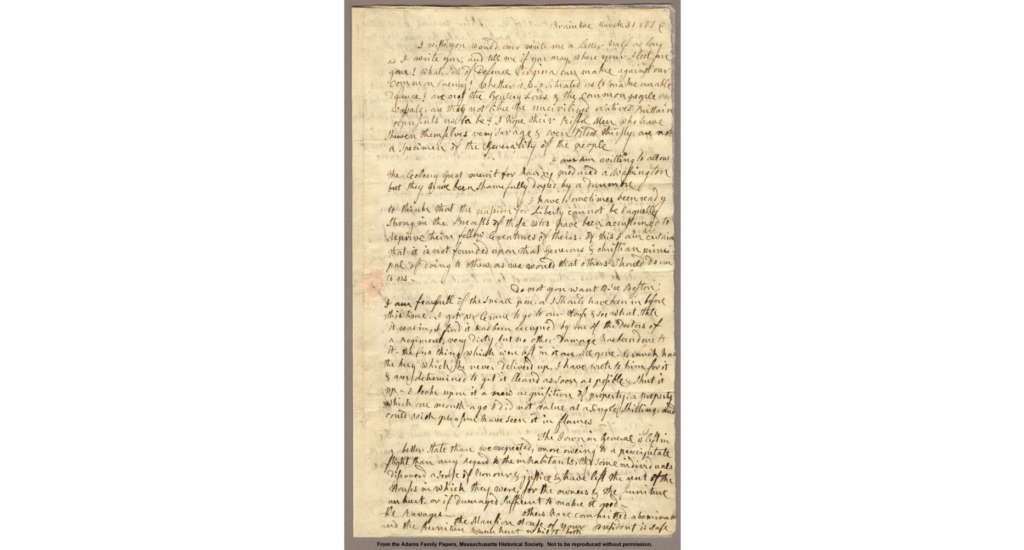 Braintree March 31 1776
I wish you would ever write me a Letter half as long
as I write you; and tell me if you may where your Fleet are
gone? What sort of Defence Virginia can make against our
common Enemy? Whether it is so situated as to make an able
Defence? are not the Gentery Lords & the common people
vassals, are they not like the uncivilized Natives Brittain
represents us to be? I hope their Riffel Men who have
shewen themselves very savage & even Blood thirsty; are not
a specimen of the Generality of the people
I am willing to allow
the Colony great merrit for having produced a Washington
but they have been shamefully duped by a Dunmore
I have sometimes been ready
to think that the passion for Liberty cannot be Eaquelly
Strong in the Breasts of those who have been accustomed to
deprive their fellow Creatures of theirs. of this I am certain
that it is not founded upon that Generous & christian princi
pal of doing to others as we would that others should do un
to us.
Do not you want to see Boston;
I am fearfull of the small pox, or I should have been in before
this time. I got Mr Crane to go to our House & see what state
it was in, I find it has been occupied by one of the Doctors of
a Regiment, very dirty but no other Damage has been done to
it the few things which were left in it are all gone. Cranch has
the key which he never deliverd up, I have wrote to him for it
& am determined to get it cleand as soon as posible & shut it
up — I look upon it a new acquisition of property, a property
which one month ago I did not value at a single Shilling, and
could with pleasure have seen it in flames
The Town in General is left in
a better state than we expected, more oweing to a percipitate
flight than any regard to the inhabitants, tho some individuals
discoverd a sense of Honour & justice & have left the rent of the
Houses in which they were, for the owners & the furniture
unhurt, or if damaged sufficent to make it good —
others have committed abominable
Ravages
the Mansion House of your President is safe
and the furniture unhurt whilst both
From the Adams Family Papers, Massachusetts Historical Society. Not to be reproduced without permission.